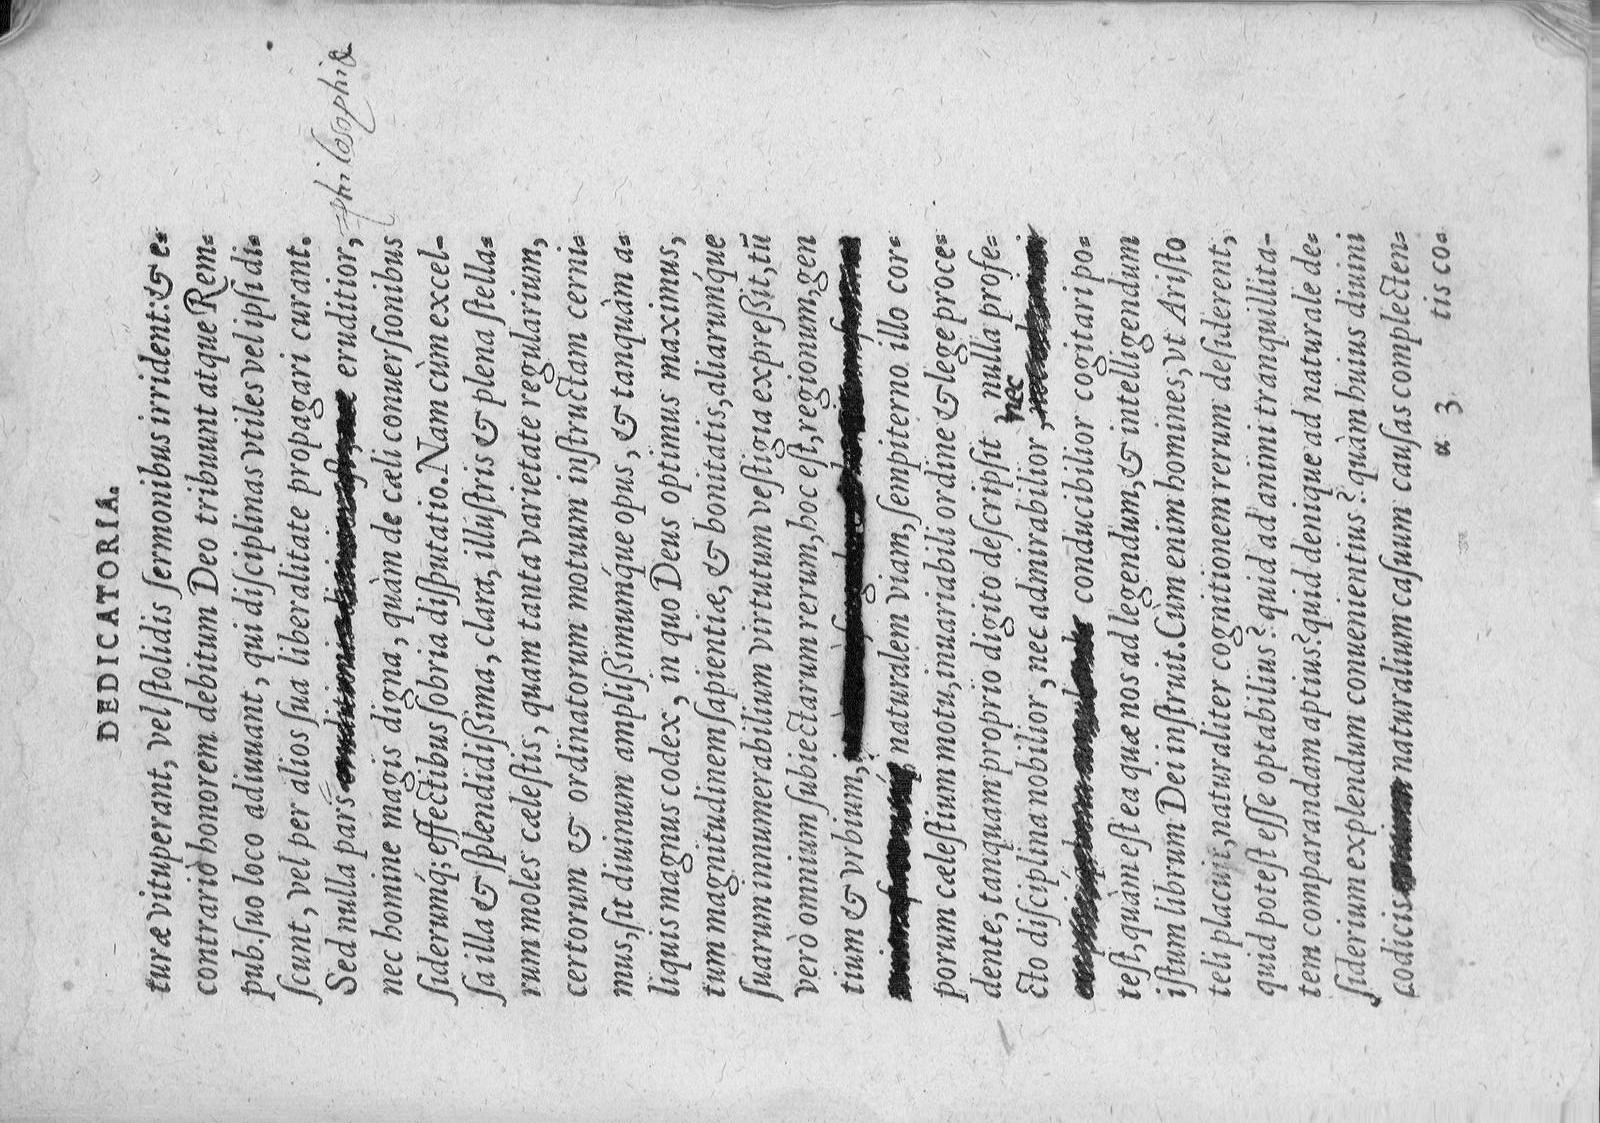 DEDICATORIA.
turæ vituperant, vel ſtolidis ſermonibus irrident: & e=
contrariò honorem debitum Deo tribuunt atque Rem=
pub. ſuo loco adiuuant, qui diſciplinas vtiles vel ipſi di=
ſcunt, vel per alios ſua liberalitate propagari curant.
Sed nulla pars eruditior, philosophiæ
nec homine magis digna, quàm de cæli conuerſionibus
ſiderumq́; effectibus ſobria diſputatio. Nam cùm excel-
ſa illa & ſplendidiſsima, clara, illuſtris & plena ſtella=
rum moles cæleſtis, quam tanta varietate regularium,
certorum & ordinatorum motuum inſtructam cerni=
mus, ſit diuinum ampliſsimumq́ue opus, & tanquàm a=
liquis magnus codex, in quo Deus optimus maximus,
tum magnitudinem ſapientiæ, & bonitatis, aliarumq́ue
ſuarum innumerabilium virtutum veſtigia expreſsit, tū
verò omnium ſubiectarum rerum, hoc eſt, regionum, gen
tium & vrbium,
naturalem viam, ſempiterno illo cor=
porum cæleſtium motu, inuariabili ordine & lege proce=
dente, tanquam proprio digito deſcripſit, nulla profe=
cto diſciplina nobilior, nec admirabilior, nec
conducibilior cogitari po=
teſt, quàm eſt ea quæ nos ad legendum, & intelligendum
iſtum librum Dei inſtruit. Cùm enim homines, vt Ariſto
teli placuit, naturaliter cognitionem rerum deſiderent,
quid poteſt eſſe optabilius? quid ad animi tranquillita-
tem comparandam aptius? quid denique ad naturale de=
ſiderium explendum conuenientius? quàm huius diuini
codicis naturalium caſuum cauſas complecten=
a 3 tis co=